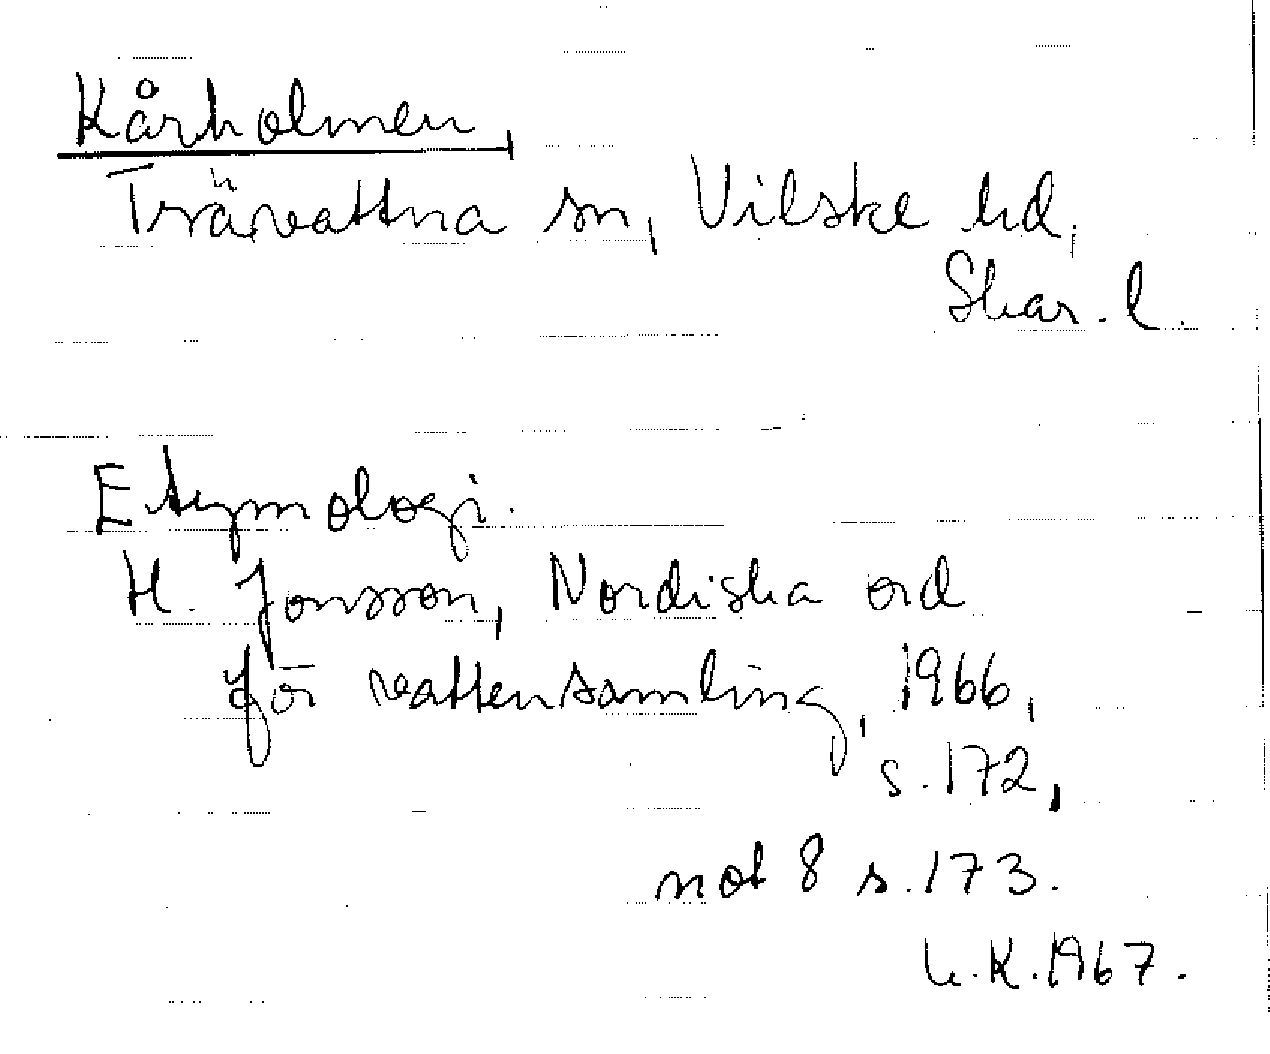 Kårholmen,
Trävattna sn, Vilske hd,
Skar. l.
Etymologi.
H. Jonsson, Nordiska ord
för vattensamling, 1966,
s. 172,
not 8 s. 173.
K. 1967.